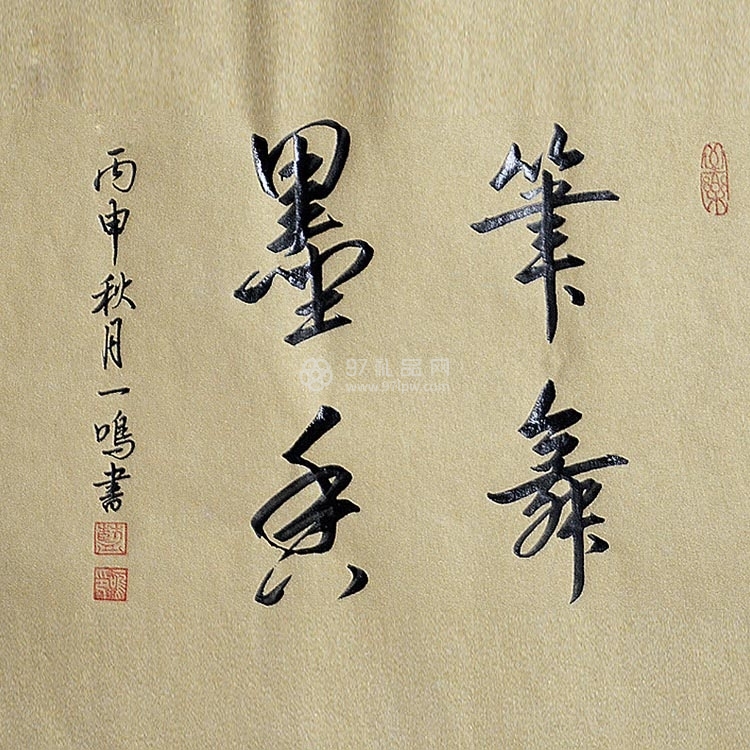 筆舞
墨香
丙申秋月一鳴書
97礼品网
www.97lpw.com